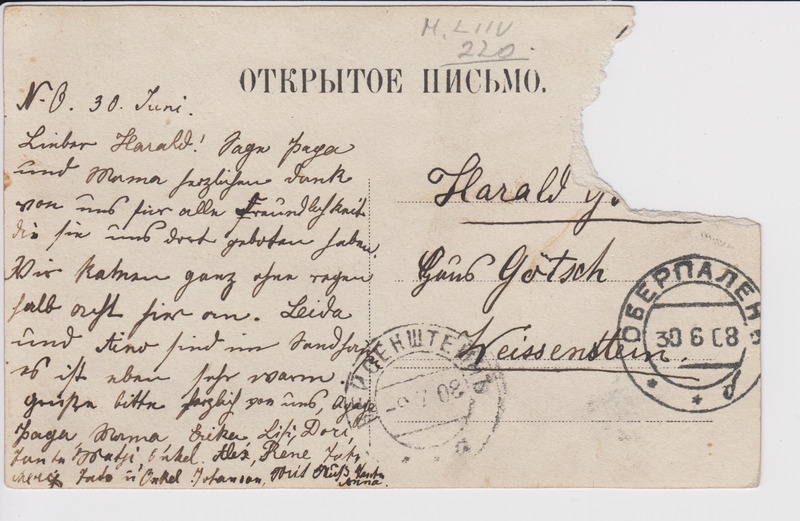 M. LIIV
220.
ОТКРЫТОЕ ПИСЬМО.
N-O. 30. Juni.
Lieber Harald! Sage Papa
und Mama herzlichen Dank
von uns für alle Freundlichkeit
die sie uns dort geboten haben.
Wir kamen ganz ohne regen
halb acht hier an. Leida
und Aino sind im Sandhau
es ist eben sehr warm.
grüße bitte herzlich von uns,
Papa, Mama, Erika, Lisi, Dori,
Tante Onkel. Alex, Rene
Onkel Johanson, Mit Kuß Tante
Anna.
Harald
Haus Götsch
Weissenstein.
ОБЕРПАЛЕНЪ
30 6 08
ВЕЙСЕНШТЕЙНЪ